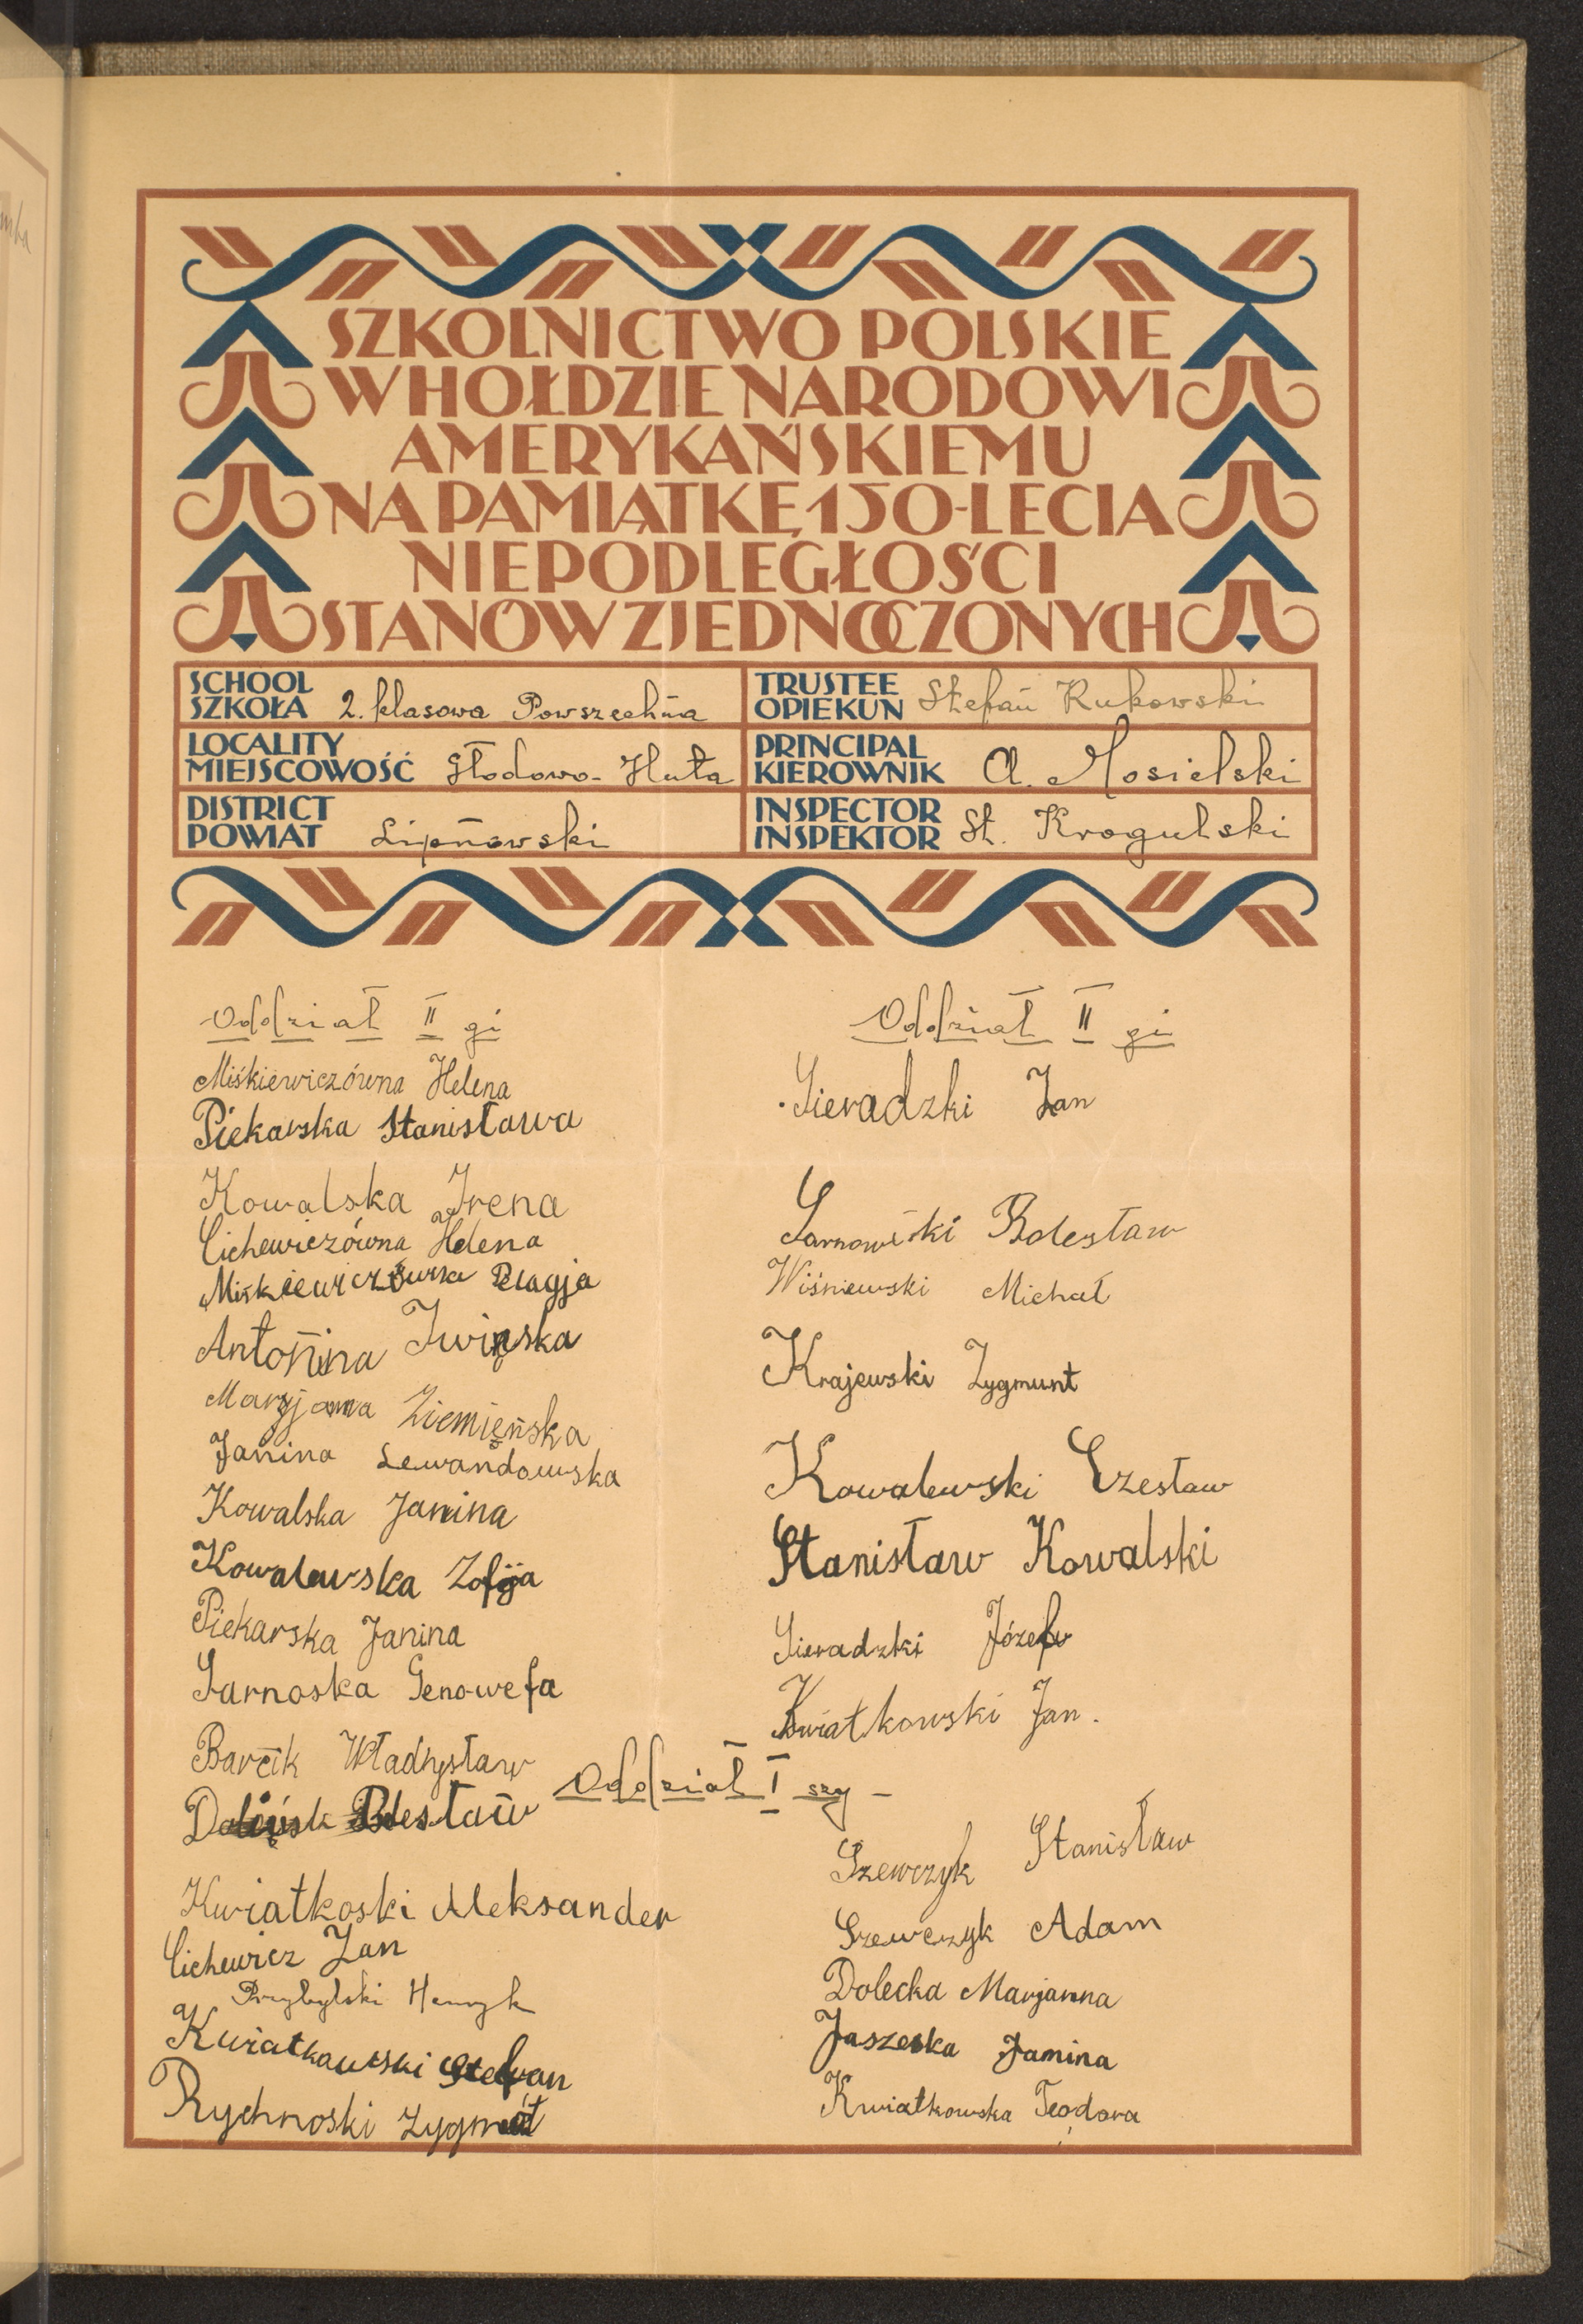 SZKOLNICTWO POLSKIE
W HOŁDZIE NARODOWI
AMERYKAŃSKIEMU
NA PAMIĄTKĘ 150-LECIA
NIEPODLEGŁOŚCI
STANÓW ZJEDNOCZONYCH
SCHOOL
SZKOŁA 2. klasowa Powszechna
TRUSTEE
OPIEKUN Stefan Rukowski
LOCALITY
MIEJSCOWOŚĆ Głodowo-Huta
PRINCIPAL
KIEROWNIK A. Mosielski
DISTRICT
POWIAT Lipnowski
INSPECTOR
INSPEKTOR St. Krogulski
Oddział II gi
Miśkiewiczówna Helena
Piekarska Stanisława
Kowalska Irena
Cichewiczówna Helena
Miśkiewiczówna Pelagja
Antonina Iwińska
Marjanna Ziemięńska
Janina Lewandowska
Kowalska Janina
Kowalewska Zofja
Piekarska Janina
Sarnoska Genowefa
Barcik Władysław
Bolesław
Kwiatkoski Aleksander
Cichewicz Jan
Przybylski Henryk
Kwiatkowski Stefan
Rychnoski Zygmót
Oddział II gi
Sieradzki Jan
Sarnowski Bolesław
Wiśniewski Michał
Krajewski Zygmunt
Kowalewski Czesław
Stanisław Kowalski
Sieradzki Józef
Kwiatkowski Jan.
Oddział I szy -
Szewczyk Stanisław
Szewczyk Adam
Dolecka Marjanna
Jaszeska Janina
Kwiatkowska Teodora